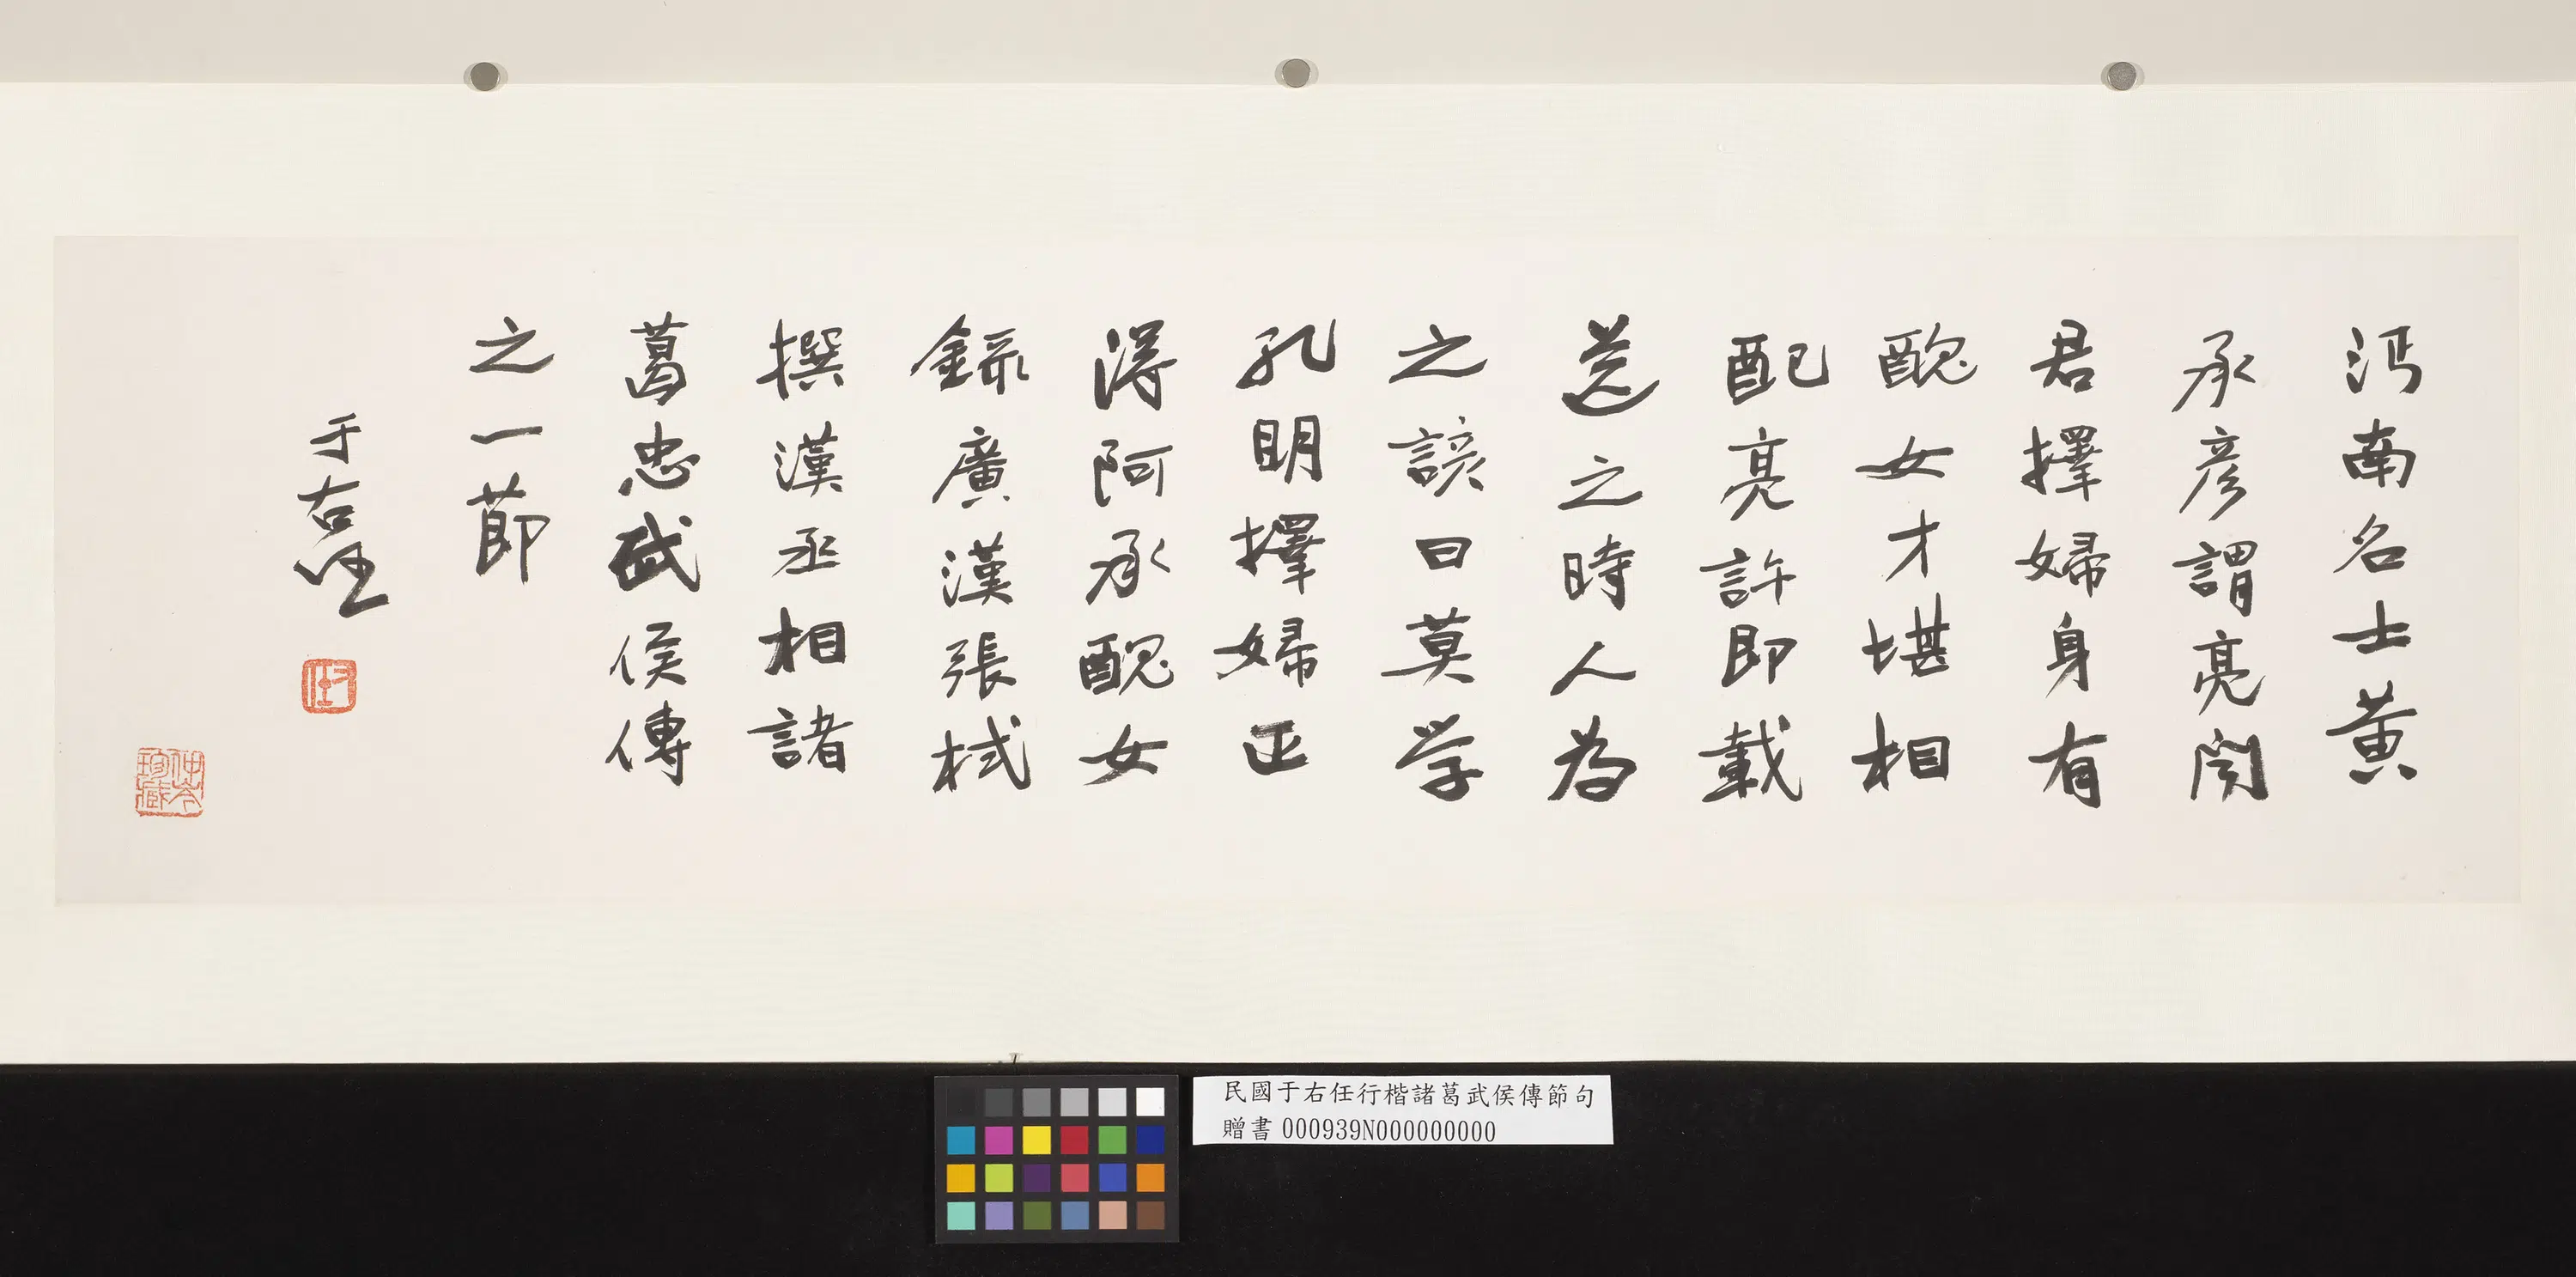 沔南名士黃
承彥謂亮聞
君擇婦身有
醜女才堪相
配亮許即載
送之時人為
之諺曰莫学
孔明擇婦正
得阿承醜女
錄廣漢張栻
撰漢丞相諸
葛忠武侯傳
之一節
于右任
右任
仲岑
珍藏
民國于右任行楷諸葛武侯傳節句
贈書 000939N000000000